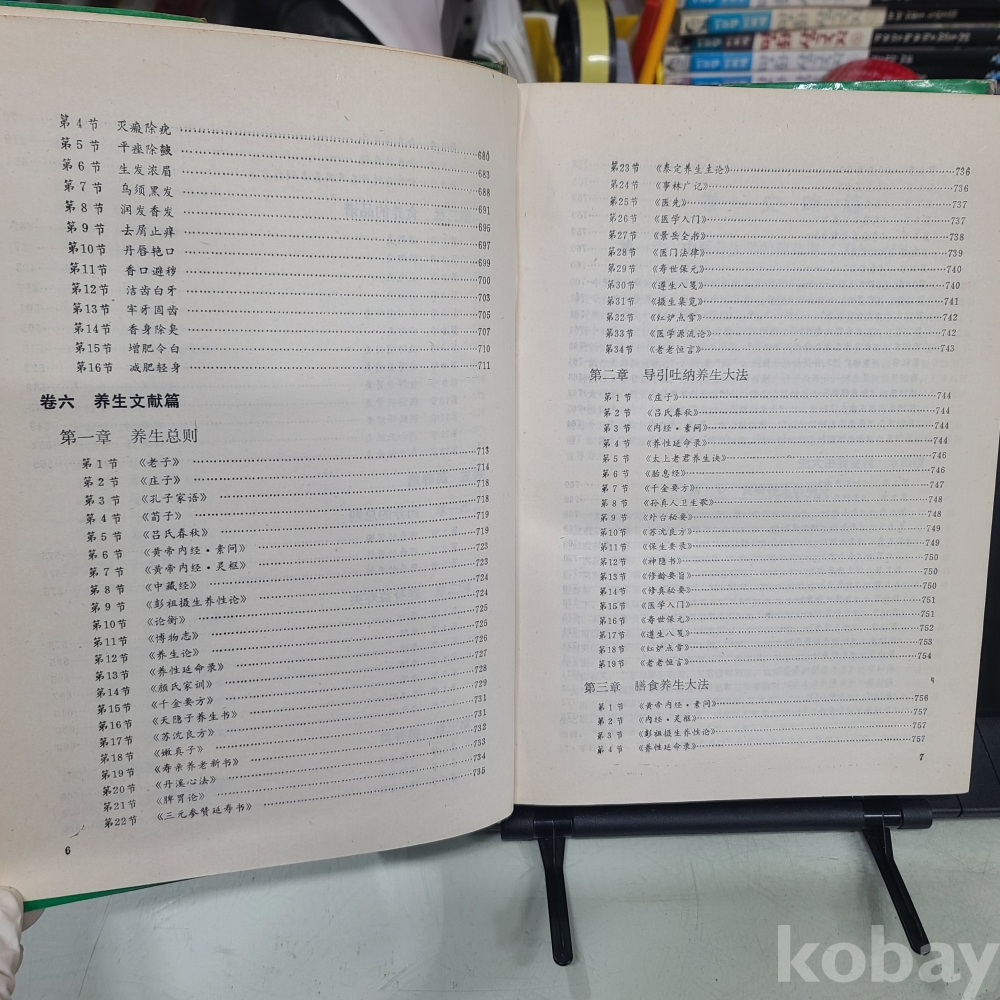 第4节 灭瘢除疣 680
第5节 平痤除𪒟 683
第6节 生发浓眉 688
第7节 乌须黑发 691
第8节 润发香发 695
第9节 去屑止痒 697
第10节 丹唇艳口 699
第11节 香口避秽 700
第12节 洁齿白牙 703
第13节 牢牙固齿 705
第14节 香身除臭 707
第15节 增肥令白 710
第16节 减肥轻身 711
卷六 养生文献篇
第一章 养生总则
第1节 《老子》 713
第2节 《庄子》 714
第3节 《孔子家语》 718
第4节 《荀子》 718
第5节 《吕氏春秋》 719
第6节 《黄帝内经·素问》 719
第7节 《黄帝内经·灵枢》 723
第8节 《中藏经》 723
第9节 《彭祖摄生养性论》 724
第10节 《论衡》 724
第11节 《博物志》 725
第12节 《养生论》 725
第13节 《养性延命录》 726
第14节 《颜氏家训》 727
第15节 《千金要方》 728
第16节 《天隐子养生书》 729
第17节 《苏沈良方》 731
第18节 《嫩真子》 731
第19节 《寿亲养老新书》 732
第20节 《丹溪心法》 733
第21节 《脾胃论》 734
第22节 《三元参赞延寿书》 735
6
第23节 《泰定养生主论》 736
第24节 《事林广记》 736
第25节 《医先》 737
第26节 《医学入门》 737
第27节 《景岳全书》 738
第28节 《医门法律》 739
第29节 《寿世保元》 740
第30节 《遵生八笺》 740
第31节 《摄生集览》 741
第32节 《红炉点雪》 742
第33节 《医学源流论》 742
第34节 《老老恒言》 743
第二章 导引吐纳养生大法
第1节 《庄子》 744
第2节 《吕氏春秋》 744
第3节 《内经·素问》 744
第4节 《养性延命录》 744
第5节 《太上老君养生诀》 746
第6节 《胎息经》 746
第7节 《千金要方》 747
第8节 《孙真人卫生歌》 748
第9节 《外台秘要》 748
第10节 《苏沈良方》 749
第11节 《保生要录》 749
第12节 《神隐书》 750
第13节 《修龄要旨》 750
第14节 《修真秘要》 750
第15节 《医学入门》 751
第16节 《寿世保元》 751
第17节 《遵生八笺》 752
第18节 《红炉点雪》 753
第19节 《老老恒言》 754
第三章 膳食养生大法
第1节 《黄帝内经·素问》 756
第2节 《内经·灵枢》 757
第3节 《彭祖摄生养性论》 757
第4节 《养性延命录》 757
7
kobay